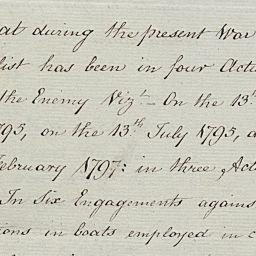 at during the present War
list has been in four Acti
the Enemy Vizt– On the 13th
795, on the 13th July 1795, a
February 1797: in three Act
In Six Engagements agains
ions in boats employed in c